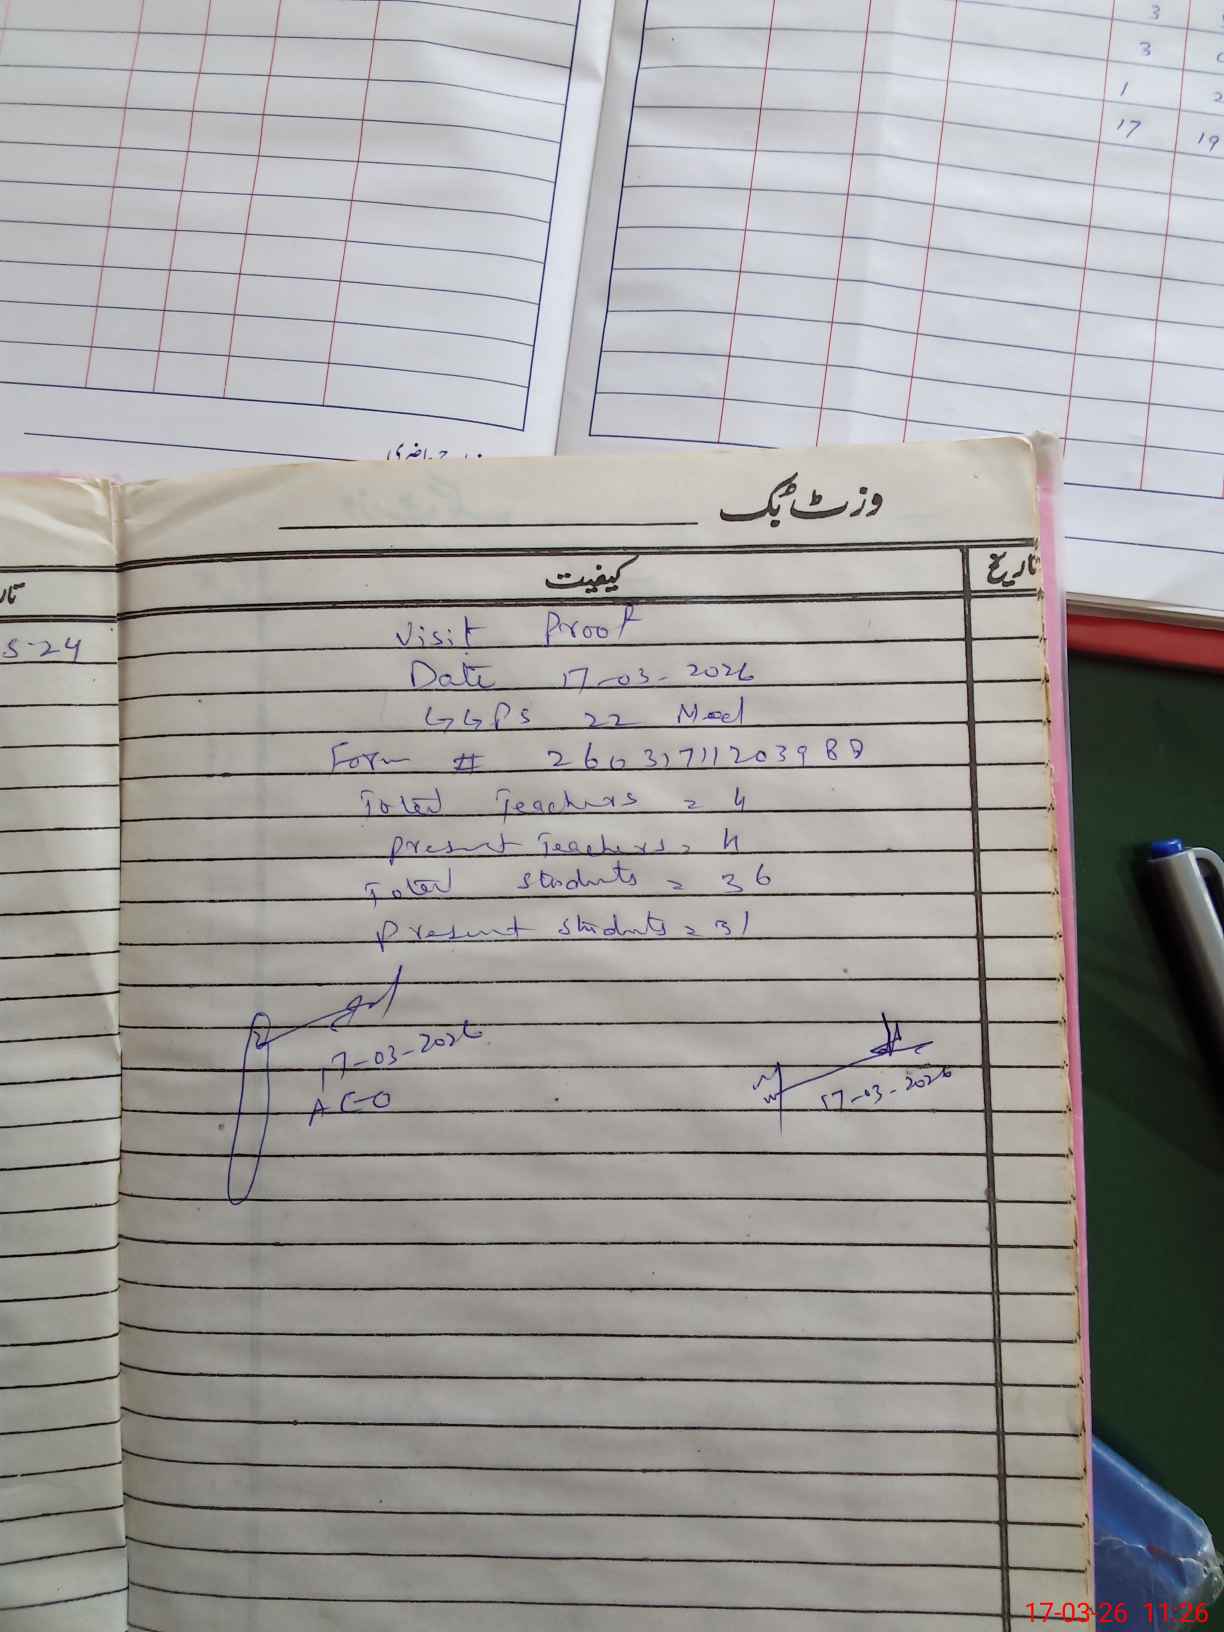 3
3
1 2
17 19
وزٹ بُک
تاریخ
کیفیت
5-24
Visit Proof
Date 17-03-2026
GGPS 22 Mod
Form # 26031711203988
Total Teachers = 4
Present Teachers = 4
Total Students = 36
Present Students = 31
17-03-2026
AEO
17-03-2026
17-03-26 11:26